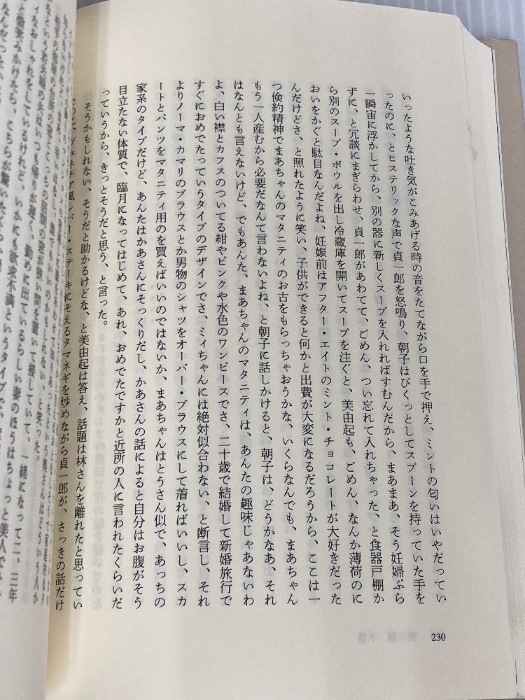 いったような吐き気がこみあげる時の音をたてながら口を手で押え、ミントの匂いはいやだってい
ったのに、とヒステリックな声で貞一郎を怒鳴り、朝子はびくっとしてスプーンを持っていた手を
一瞬宙に浮かしてから、別の器に新しくスープを入れればすむんだから、まあまあ、そう妊婦ぶら
ずに、と冗談にまぎらわせ、貞一郎があわてて、ごめん、つい忘れて入れちゃった、と食器戸棚か
ら別のスープ・ボウルを出し冷蔵庫を開いてスープを注ぐと、美由起も、ごめん、なんか薄荷のに
おいをかぐと駄目なんだよね、妊娠前はアフター・エイトのミント・チョコレートが大好きだった
んだけどさ、と照れたように笑い、子供ができると何かと出費が大変になるだろうから、ここは一
つ倹約精神でまあちゃんのマタニティのお古をもらっちゃおうかな、いくらなんでも、まあちゃん
もう一人産むから必要だなんて言わないよね、と朝子に話しかけると、朝子は、どうかなあ、それ
はなんとも言えないけど、でもあんた、まあちゃんのマタニティは、あんたの趣味じゃあないわ
よ、白い襟とカフスのついてる紺やピンクや水色のワンピースでさ、二十歳で結婚して新婚旅行で
すぐにおめでたっていうタイプのデザインでさ、ミィちゃんには絶対似合わない、と断言し、それ
よりノーマ・カマリのブラウスとか男物のシャツをオーバー・ブラウスにして着ればいいし、スカ
ートとパンツをマタニティ用のを買えばいいのではないか、まあちゃんはとうさん似で、あっちの
家系のタイプだけど、あんたはかあさんにそっくりだし、かあさんの話によると自分はお腹がそう
目立たない体質で、臨月になってはじめて、あれ、おめでたですかと近所の人に言われたくらいだ
っていうから、きっとそうだと思う、と言った。
そうかもしれない、そうだと助かるけどな、と美由起は答え、話題は林さんを離れたと思ってい
ステーキにそえるタマネギを炒めながら貞一郎が、さっきの話だけ
230